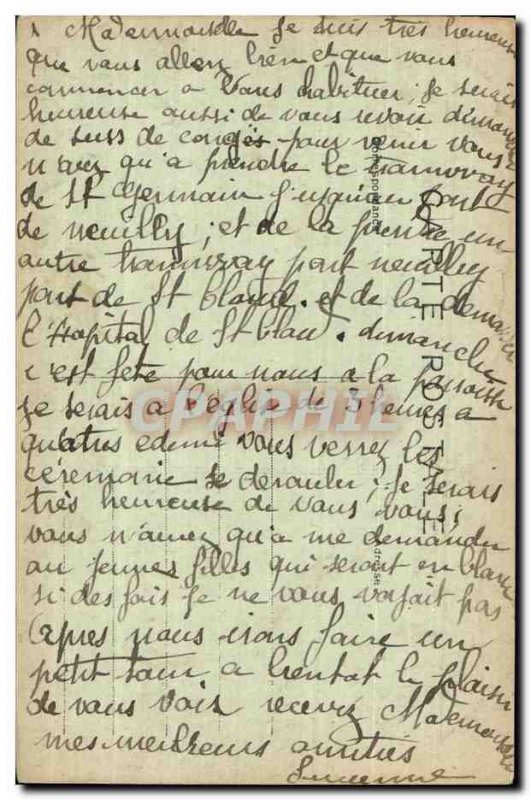 Mademoiselle Je suis très heureuse
que vous allez bien et que vous
commencer a vous habituer, je serais
heureuse aussi de vous revoir dimanche
de suis de congés pour venir vous
n'avez qu'a prendre le tramway
de St Germain jusqu'au pont
de neuilly, et de la prendre un
autre tramway pont neuilley
pont de St Cloud. et de la demander
l'Hopital de St Clau. dimanche
c'est fête pour nous a la paroisse
je serais a l'eglise de 3 heures a
quatres edemi vous verrez les
céremonie se derouler; je serais
très heureuse de vous vous,
vous n'aurez qu'a me demander
au jeunes filles qui seront en blanc
si des fois je ne vous voyait pas
Apres nous irons faire un
petit tour a bientot le plaisir
de vous voir recevez Mademoiselle
mes meilleurs amitiés
Lucienne
CARTE POSTALE
CPAPHIL